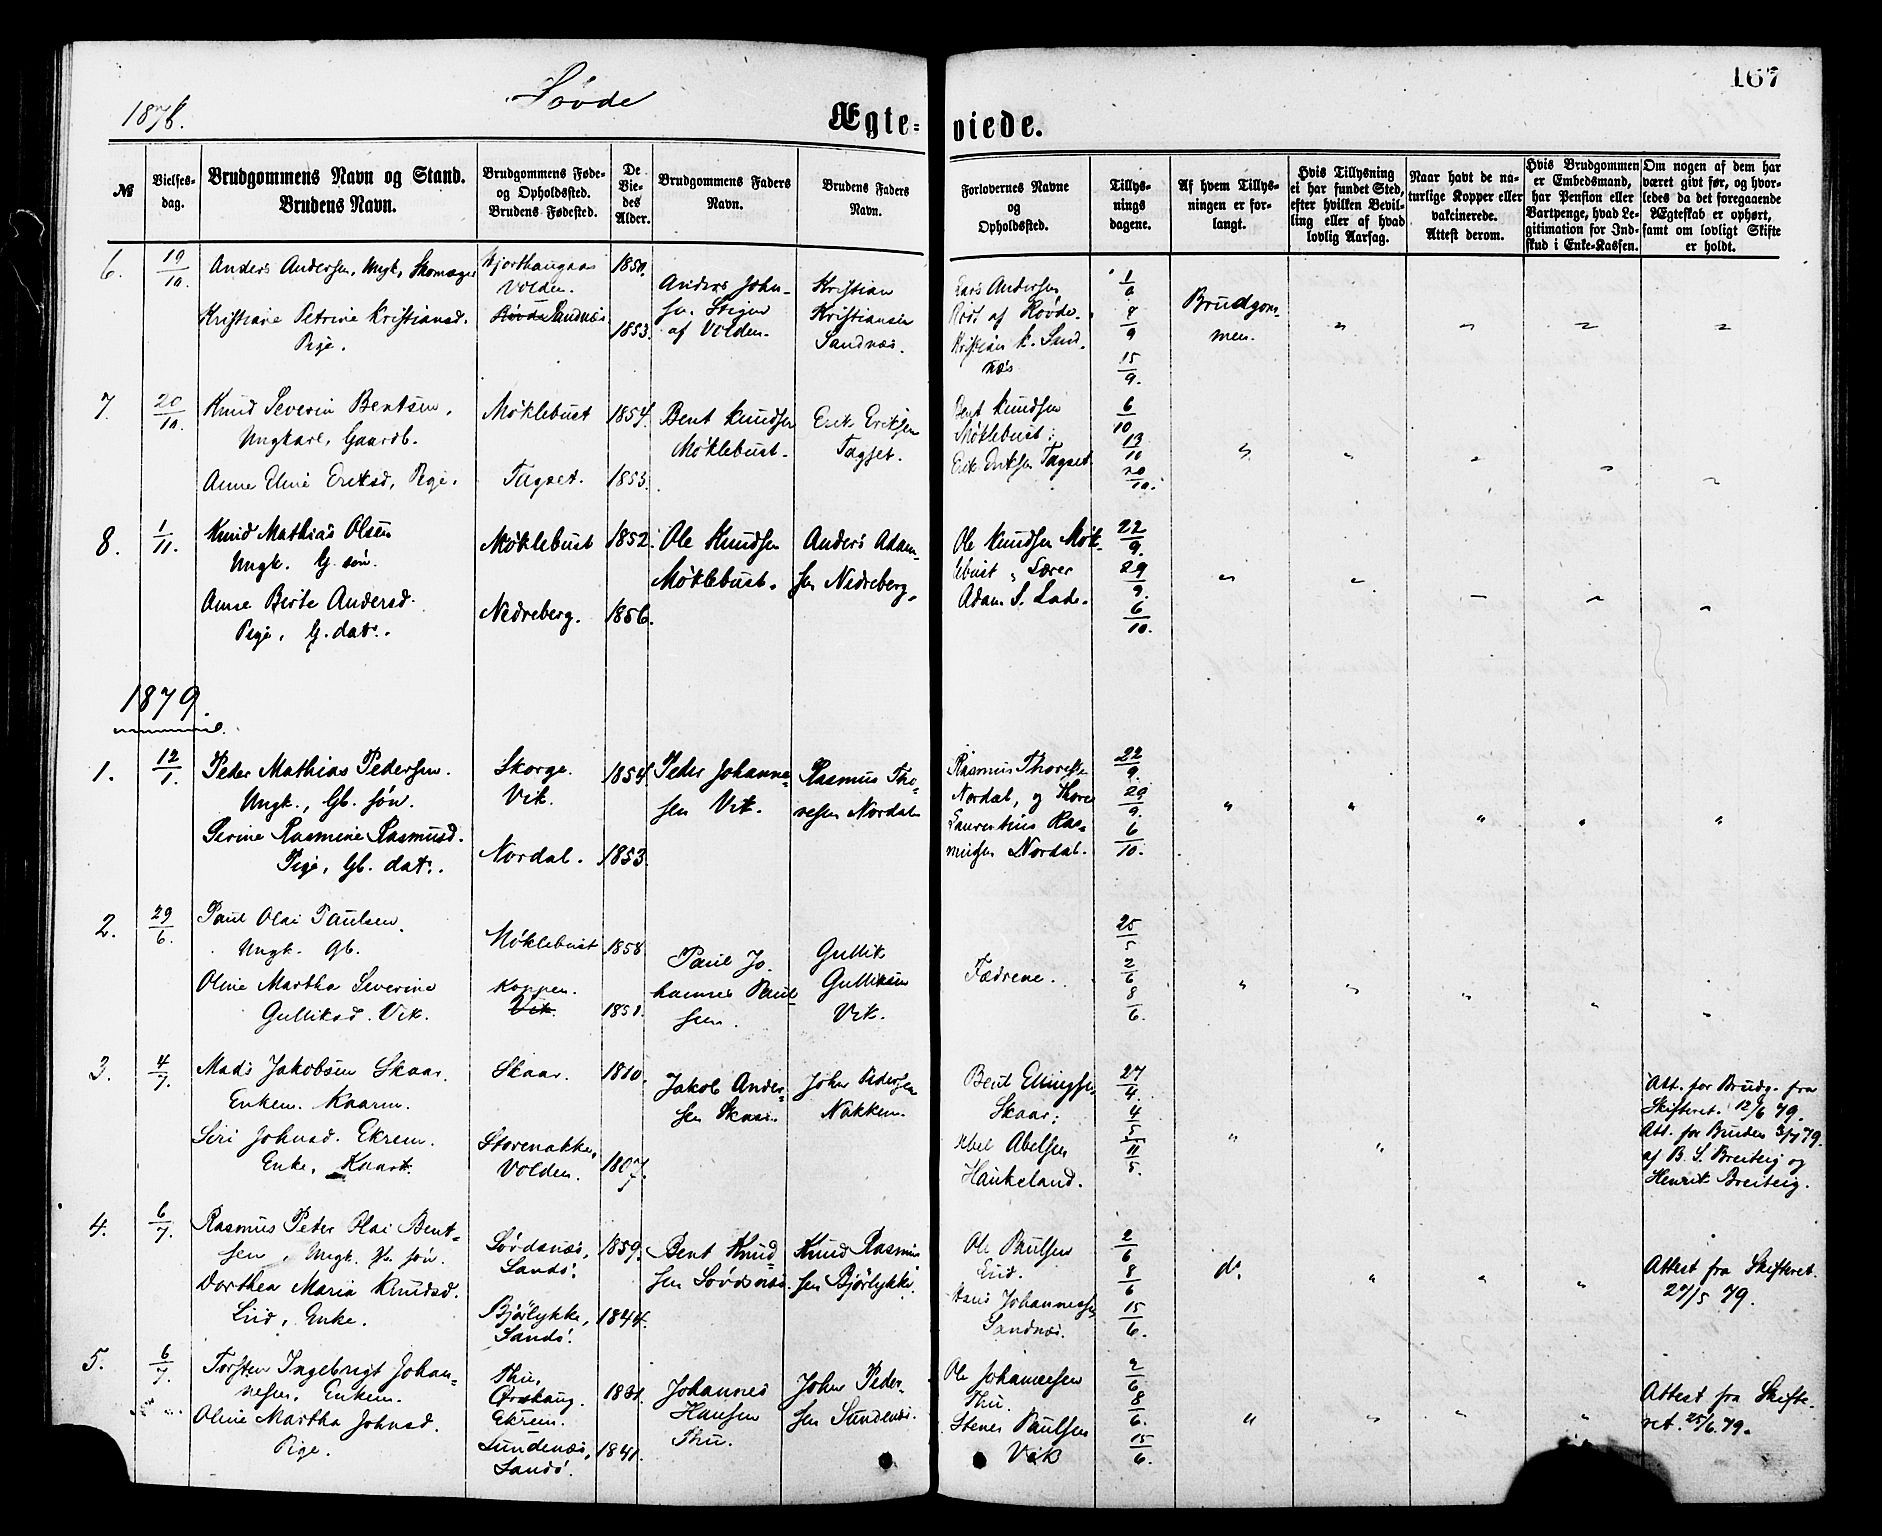 167
1878.
Søvde
Ægteviede.
№
Vielsesdag.
Brudgommens Navn og Stand. Brudens Navn.
Brudgommens Føde- og Opholdssted. Brudens Fødested.
De Viedes Alder.
Brudgommens Faders Navn.
Brudens Faders Navn.
Forlovernes Navne og Opholdssted.
Tillysningsdagene.
Af hvem Tillysningen er forlangt.
Hvis Tillysning ei har fundet Sted, efter hvilken Bevilling eller af hvad lovlig Aarsag.
Naar havt de naturlige Kopper eller vakcinerede. Attest derom.
Hvis Brudgommen er Embedsmand, har Pension eller Vartpenge, hvad Legitimation for Indskud i Enke-Kassen.
Om nogen af dem har været givt før, og hvorledes da det foregaaende Ægteskab er ophørt, samt om lovligt Skifte er holdt.
6.
19/10.
Anders Andersen, Ungk, Skomager
Kristiane Petrine Kristiansd.
Pige.
Volden.
Sandnæs.
1850.
1853.
Anders John-
sen
af Volden.
Kristian
Kristiansen
Sandnæs.
Lars Andersen
af Røvde.
Kristian K. Sand-
næs
8/9
15/9.
Brudgom-
men.
7.
20/10.
Knud Severin Bentsen,
Ungkarl, Gaardb.
Anne Eline Eriksd, Pige.
Møklebust
Tagset.
1854.
1853.
Bent Knudsen
Møklebust.
Erik Eriksen
Tagset.
Bent Knudsen
Møklebust;
Erik Eriksen Tagset
6/10
13/10
20/10.
8.
1/11.
Knud Mathias Olsen
Ungk. G. søn.
Anne Berte Andersd.
Pige, G. dat.
Møklebust
Nedreberg.
1852.
1856.
Ole Knudsen
Møklebust.
Anders Adam-
sen Nedreberg.
Ole Knudsen Møk-
lebust, Lærer
Adam S. Lade.
22/9.
29/9.
6/10.
1879.
1.
12/1.
Peder Mathias Pedersen.
Ungk., Gb. søn.
Serine Rasmine Rasmusd.
Pige, Gb. dat.
Skorge.
Vik.
Nordal.
1854.
1853.
Peder Johanne-
sen Vik.
Rasmus Tho-
resen Nordal
Rasmus Thoresen
Nordal, og Thore
Laurentius Ras-
musen Nordal.
22/9.
29/9.
6/10.
2.
29/6.
Paul Olai Paulsen.
Ungk. Gb.
Oline Martha Severine
Gulliksd. Vik.
Møklebust
Koppen.
Vik.
1858.
1851.
Paul Jo-
hannes Paul-
sen.
Gullik
Gulliksen
Vik.
Fædrene.
25/5
2/6
8/6.
3.
4/7.
Mads Jakobsen Skaar.
Enkem. Kaarm.
Siri Johnsd. Ekrem.
Enke, Kaark.
Skaar.
Storenakken,
Volden.
1810.
1807.
Jakob Ander-
sen Skaar.
John Pedersen
Nakken.
Bent Elingsen
Skaar;
Abel Abelsen
Haukeland.
27/4.
4/5
11/5.
Att. for Brudg. fra
Skifteret. 12/6 79.
Att. for Bruden 3/7 79.
af B. S. Breiteig og
Henrik Breiteig.
4.
6/7
Rasmus Peder Olai Bent-
sen, Ungk. Gb. søn.
Dorthea Maria Knudsd.
Liid, Enke.
Sørdsnæs,
Sandö.
Bjørlykke,
Sandö.
1859.
1844.
Bent Knud-
sen Sørdsnæs.
Knud Rasmus-
sen Bjørlykke.
Ole Paulsen
Hans Johannessen
Sandnæs.
2/6
8/6
15/6.
do.
Attest fra Skifteret.
27/5 79.
5.
6/7.
Torsten Ingebrigt Johan-
nesen, Enkem.
Oline Martha Johnsd.
Pige.
Thu,
Ørskaug.
Ekrem.
Sundenæs,
Sandö.
1841.
Johannes
Hansen
Thu.
John Peder-
sen Sundenæs.
Ole Johannesen
Thu.
Stener Paulsen
Vik
2/6
8/6.
15/6.
Attest fra Skifte-
ret. 25/6.79.